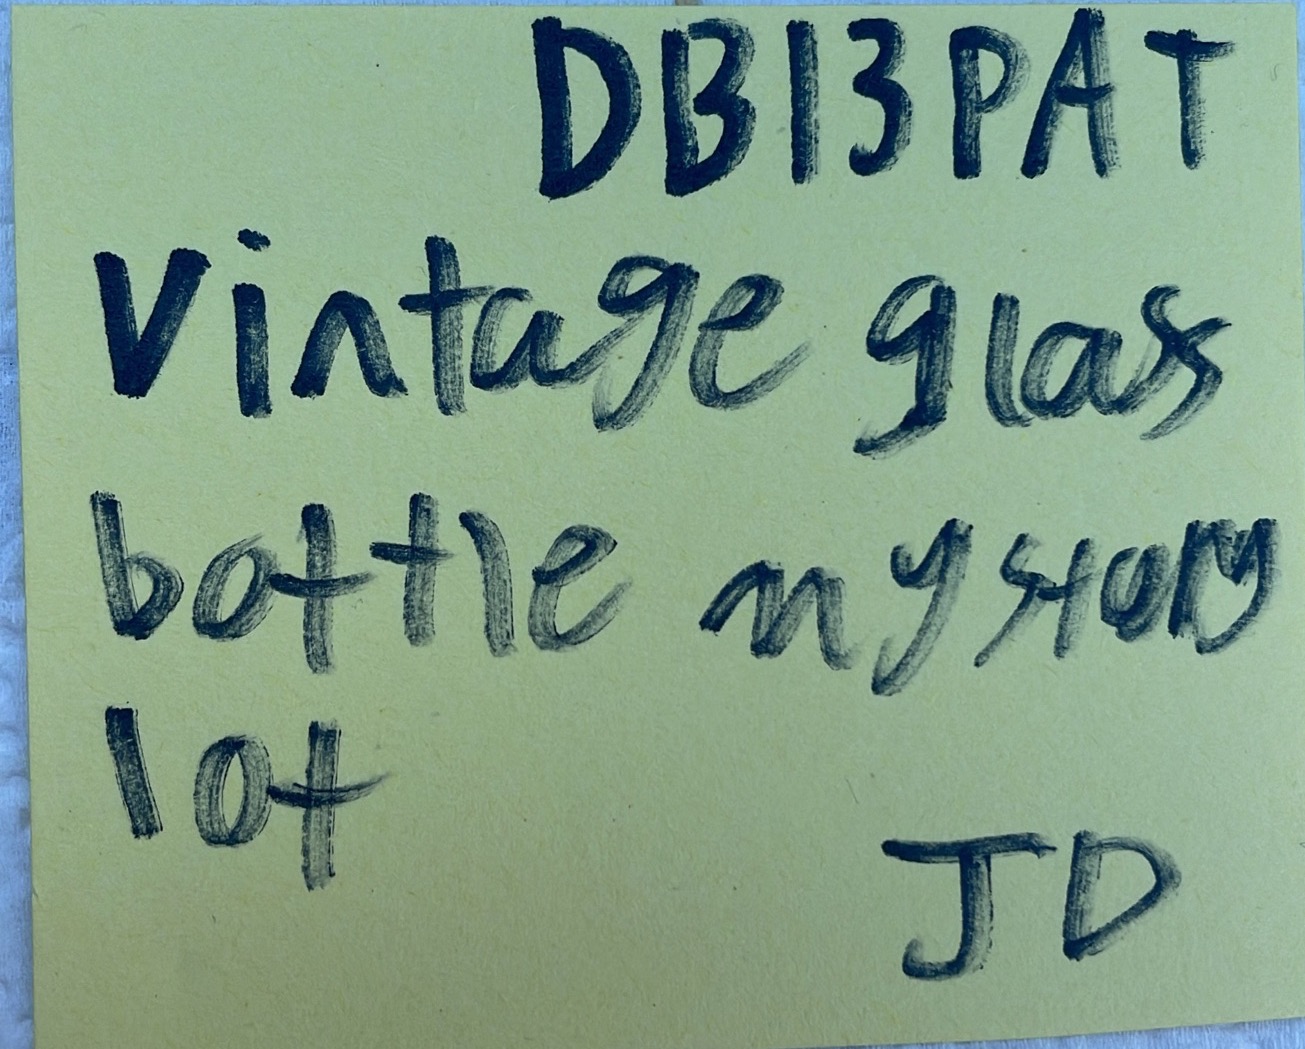 DB13PAT
Vintage glass
bottle mystory
lot
JD